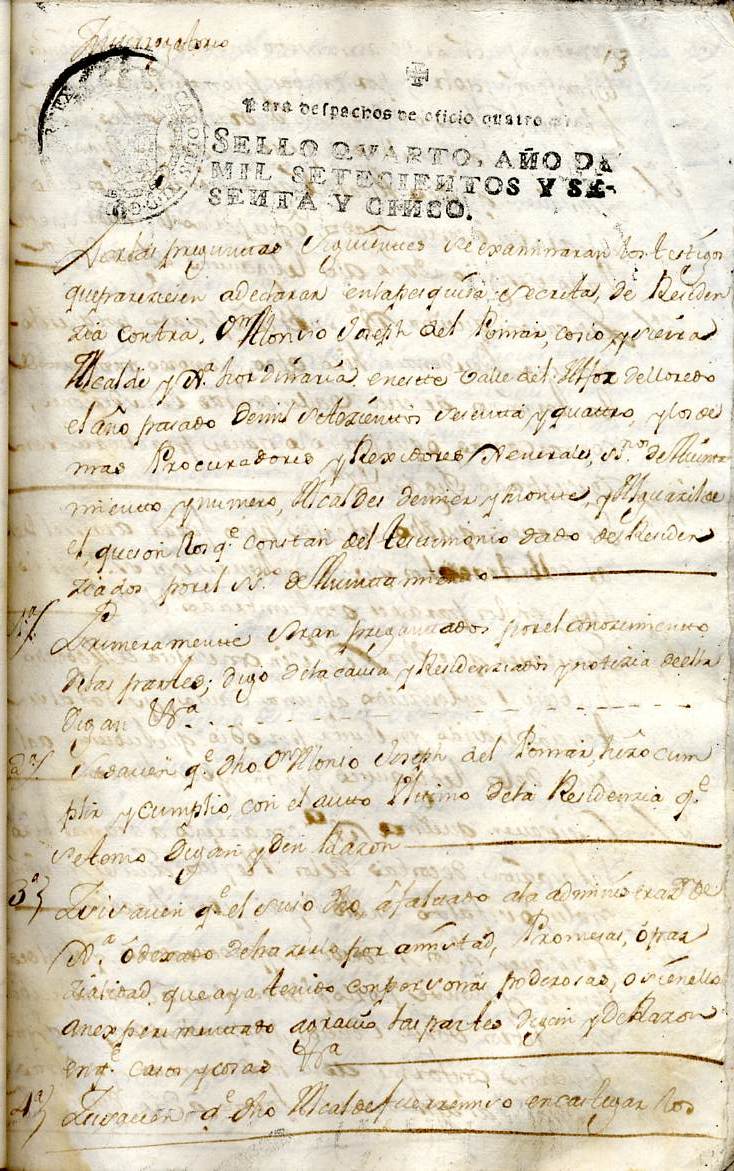 Interrogatorio
13
Para despachos de oficio quatro mrs
SELLO QVARTO, AÑO DE
MIL SETECIENTOS Y SE-
SENTA Y CINCO.
Por las preguntas siguientes se examinaran los testigos
que parezieren a declarar en la pesquisa secreta, de Residen
zia contra, Dn Alonso Joseph del Pomar, cosio y sierra
Alcalde y Ja. hordinaria, en este Valle del Alfoz de lloredo
el año pasado de mil setezientos sesenta y quattro, y los de
mas Procuradores y Rexidores Jenerales, ss.nos de Aiunta
miento y numero, Alcaldes de mer y monte, y Alguazil de
el, que son los q.e constan del testimonio dado de Residen
ziados por el ss.no de Aiuntamiento
1.a Primeramente seran preguntados por el conozimiento
de las partes; digo de la causa y Residenziados y notizia de ella
digan &.a
2.a Si saven q.e dho Dn Alonso Joseph del Pomar, hizo cum
plir y cumplio, con el autto Ultimo de la Residenzia q.e
se tomo, digan y den Razon
3.a Si saven q.e el suso dho, a faltado a la administraz.n de
J.a ó dexado de hazerla por amistad, Promesas, ó par
zialidad, que aya tenido con personas poderosas, o si en ello
an experimentado agravio las partes digan y de Razon
en q.e casos y cosas &.a
4.a Si saven q.e dho Alcalde fue remiso en castigar los